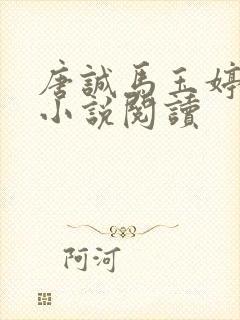 唐誠馬玉婷
小說閱讀
阿河